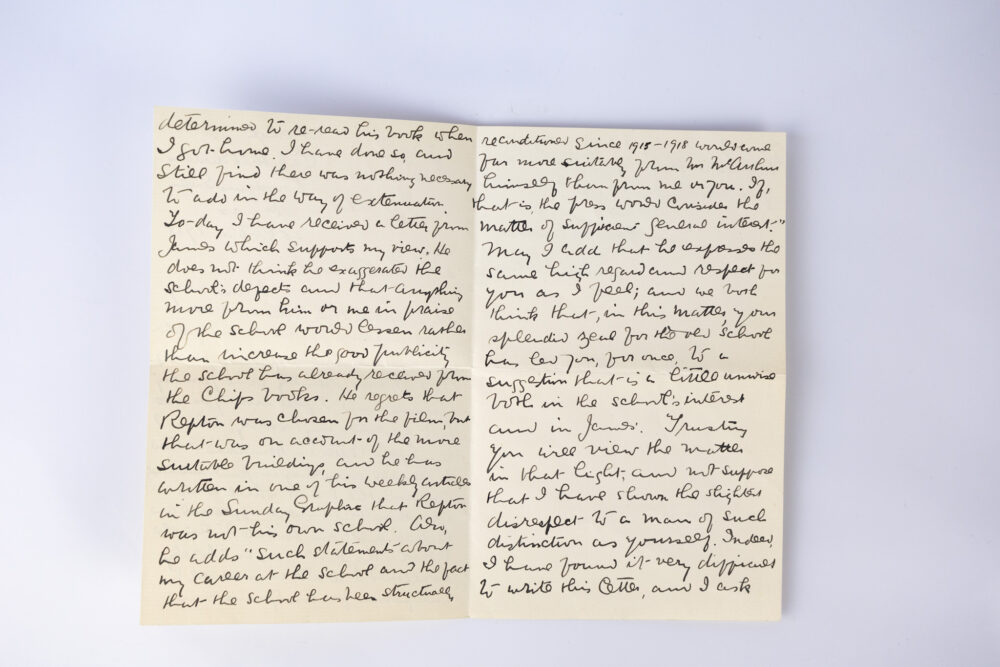 determined to re-read his book when
I got home. I have done so, and
still find there was nothing necessary
to add in the way of extenuation.
To-day I have received a letter from
James which supports my view. He
does not think he exaggerated the
school's defects and that anything
more from him or me in praise
of the school would lessen rather
than increase the good publicity
the school has already received from
the Chips books. He regrets that
Repton was chosen for the film, but
that was on account of the more
suitable buildings, and he has
written in one of his weekly articles
in the Sunday Graphic that Repton
was not his own school. Also,
he adds "Such statements about
my career at the school and the fact
that the school has been structurally
reconditioned since 1915-1918 would come
far more suitably from Mr McArthur
himself than from me or you. If,
that is, the press would consider the
matter of sufficient general interest."
May I add that he expresses the
same high regard and respect for
you as I feel; and we both
think that, in this matter, your
splendid zeal for the old school
has led you, for once, to a
suggestion that is a little unwise
both in the school's interest
and in James'. Trusting
you will view the matter
in that light, and not suppose
that I have shown the slightest
disrespect to a man of such
distinction as yourself. Indeed,
I have found it very difficult
to write this letter, and I ask